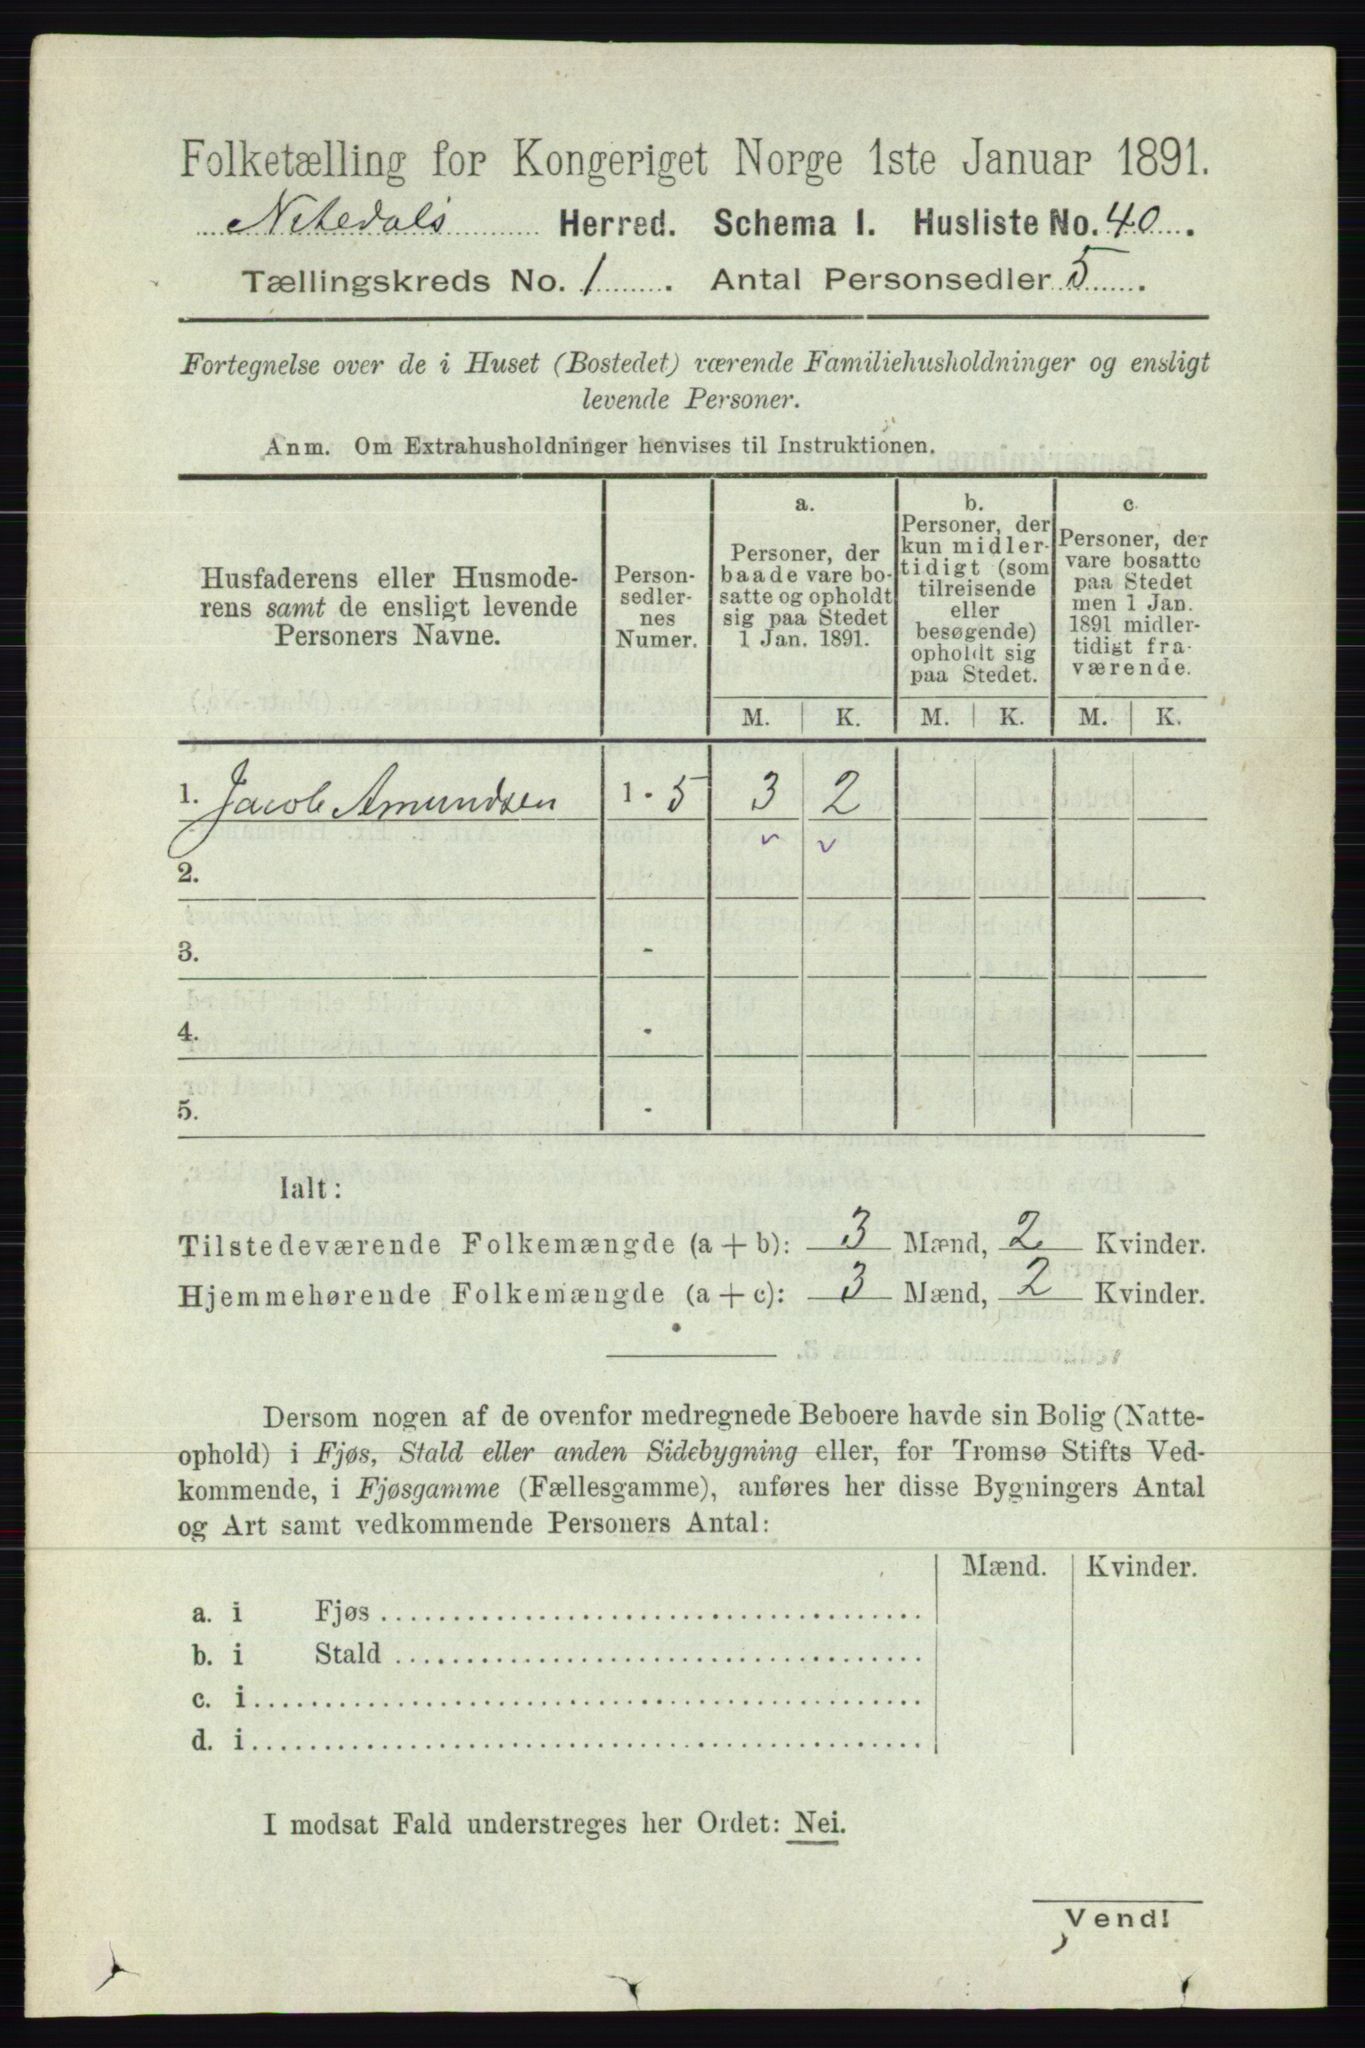 Folketælling for Kongeriget Norge 1ste Januar 1891.
Nitedals Herred. Schema I. Husliste No. 40.
Tællingskreds No. 1. Antal Personsedler 5.
Fortegnelse over de i Huset (Bostedet) værende Familiehusholdninger og ensligt
levende Personer.
Anm. Om Extrahusholdninger henvises til Instruktionen.
Husfaderens eller Husmode-
rens samt de ensligt levende
Personers Navne.
Person-
sedler-
nes
Numer.
a.
Personer, der
baade vare bo-
satte og opholdt
sig paa Stedet
1 Jan. 1891.
b.
Personer, der
kun midler-
tidigt (som
tilreisende
eller
besøgende)
opholdt sig
paa Stedet.
c.
Personer, der
vare bosatte
paa Stedet
men 1 Jan.
1891 midler-
tidigt fra-
værende.
M. K. M. K. M. K.
1. Jacob Amundsen 1 - 5 3 2
2.
3. -
4. -
5. -
Ialt:
Tilstedeværende Folkemængde (a + b): 3 Mænd, 2 Kvinder.
Hjemmehørende Folkemængde (a + c): 3 Mænd, 2 Kvinder.
Dersom nogen af de ovenfor medregnede Beboere havde sin Bolig (Natte-
ophold) i Fjøs, Stald eller anden Sidebygning eller, for Tromsø Stifts Ved-
kommende, i Fjøsgamme (Fællesgamme), anføres her disse Bygningers Antal
og Art samt vedkommende Personers Antal:
Mænd. Kvinder.
a. i Fjøs
b. i Stald
c. i
d. i
I modsat Fald understreges her Ordet: Nei.
Vend!